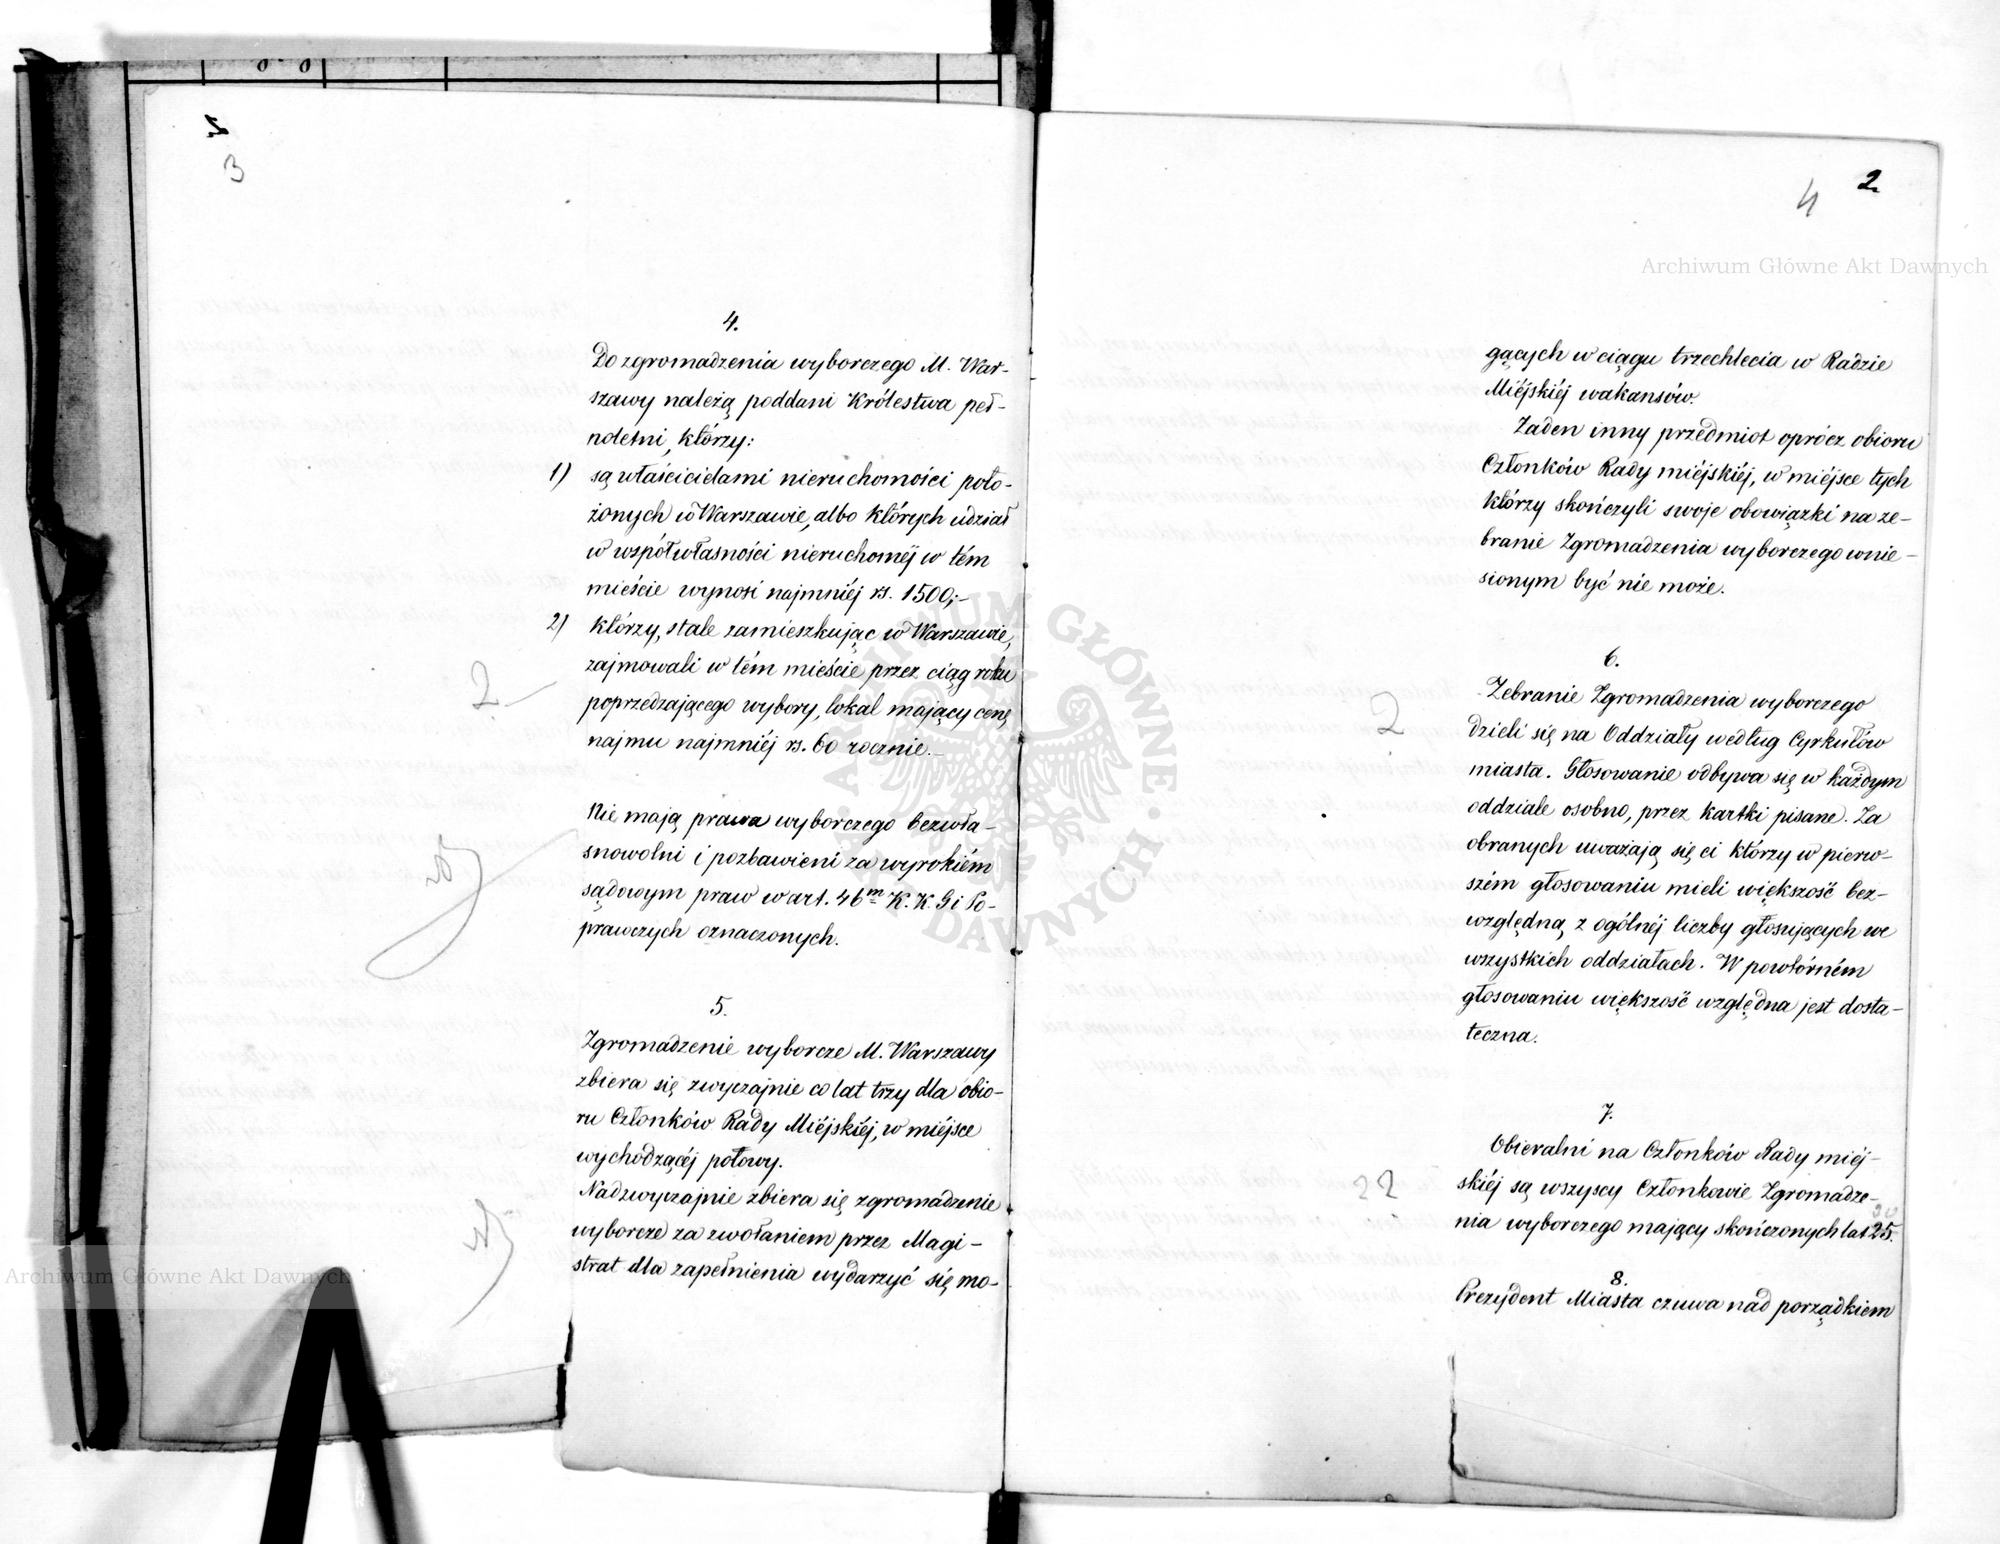 3
4.
Do zgromadzenia wyborczego M. War-
szawy należą poddani Królestwa peł-
noletni, którzy:
1) są właścicielami nieruchomości poło-
żonych w Warszawie, albo których udział
w współwłasności nieruchoméj w tém
mieście wynosi najmniéj rs. 1500;-
2) którzy, stale zamieszkując w Warszawie,
zajmowali w tém mieście przez ciąg roku
poprzedzającego wybory, lokal mający cenę
najmu najmniéj rs. 60 rocznie.-
Nie mają prawa wyborczego bezwła-
snowolni i pozbawieni za wyrokiém
sądowym praw w art. 46m K. K. G i Po-
prawczych oznaczonych.
5.
Zgromadzenie wyborcze M. Warszawy
zbiera się zwyczajnie co lat trzy dla obio-
ru Członków Rady Miéjskiéj, w miéjsce
wychodzącéj połowy.
Nadzwyczajnie zbiera się zgromadzenie
wyborcze za zwołaniem przez Magi-
strat dla zapełnienia wydarzyć się mo-
2
Archiwum Główne Akt Dawnych
4 2.
Archiwum Główne Akt Dawnych
gących w ciągu trzechlecia w Radzie
Miéjskiéj wakansów.
Żaden inny przedmiot oprócz obioru
Członków Rady miéjskiéj, w miéjsce tych
którzy skończyli swoje obowiązki na ze-
branie Zgromadzenia wyborczego wnie-
sionym być nie może.
6.
Zebranie Zgromadzenia wyborczego
dzieli się na Oddziały według Cyrkułów
miasta. Głosowanie odbywa się w każdym
oddziale osobno, przez kartki pisane. Za
obranych uważają się ci którzy w pierw-
szém głosowaniu mieli większość bez-
względną, z ogólnéj liczby głosujących we
wszystkich oddziałach. W powtórném
głosowaniu większość względna jest dosta-
teczna.
7.
Obieralni na Członków Rady miéj-
skiéj są wszyscy Członkowie Zgromadze-
nia wyborczego mający skończonych lat 25.
30
8.
Prezydent Miasta czuwa nad porządkiem
2
22
ARCHIWUM GŁÓWNE AKT DAWNYCH